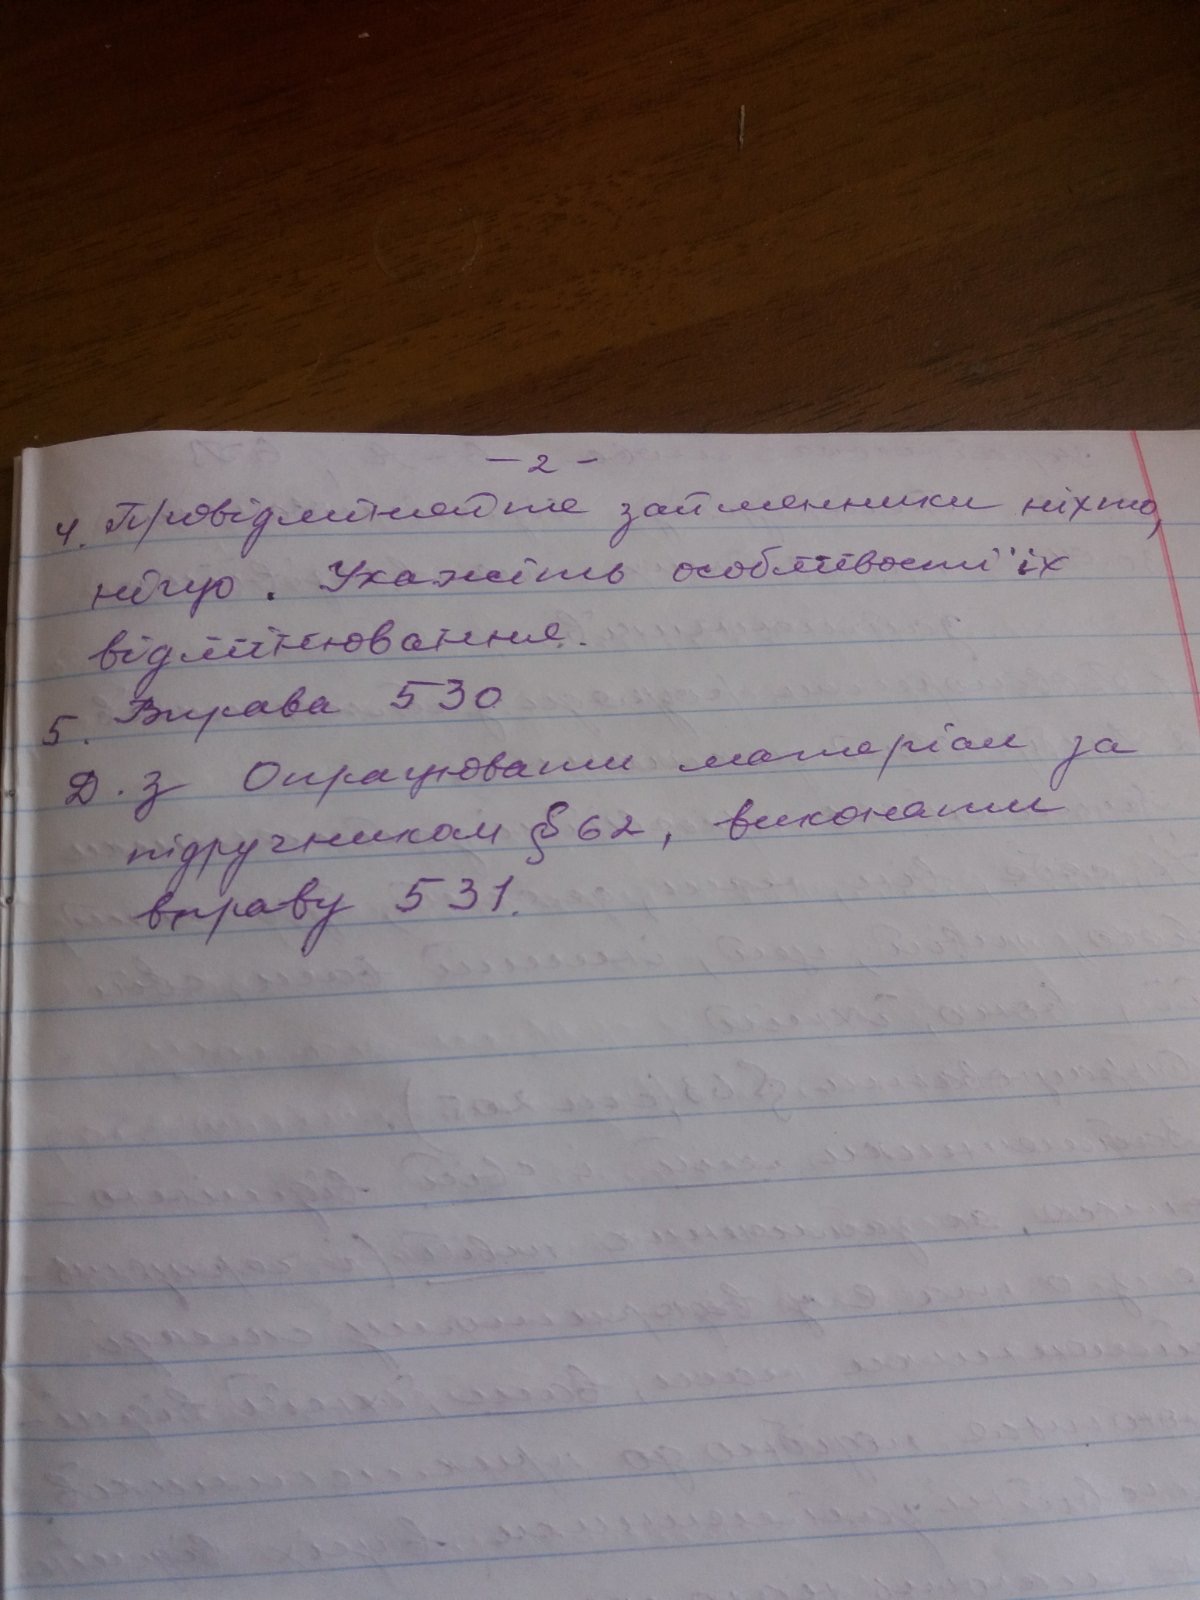 - 2 -
4. Провідмінюйте займенники ніхто,
нічию. Укажіть особливості їх
відмінювання.
5. Вправа 530
Д. з Опрацювати матеріал за
підручником § 62, виконати
вправу 531.